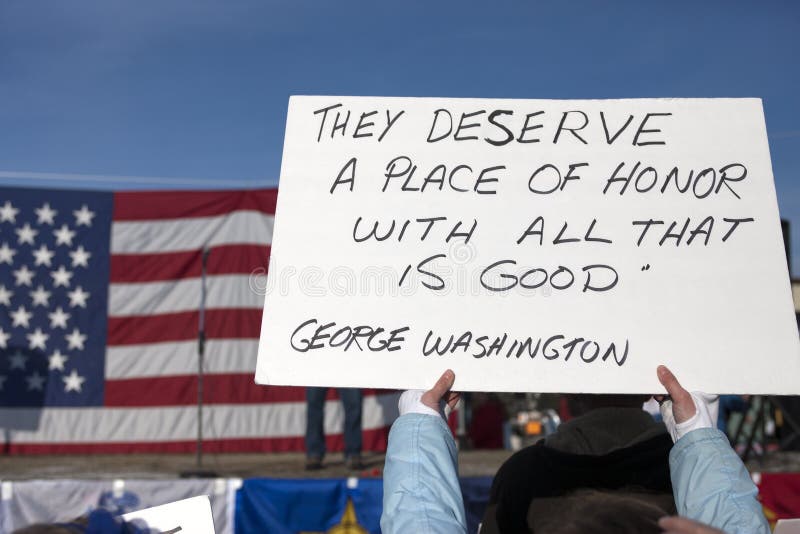 THEY DESERVE
A PLACE OF HONOR
WITH ALL THAT
IS GOOD"
GEORGE WASHINGTON